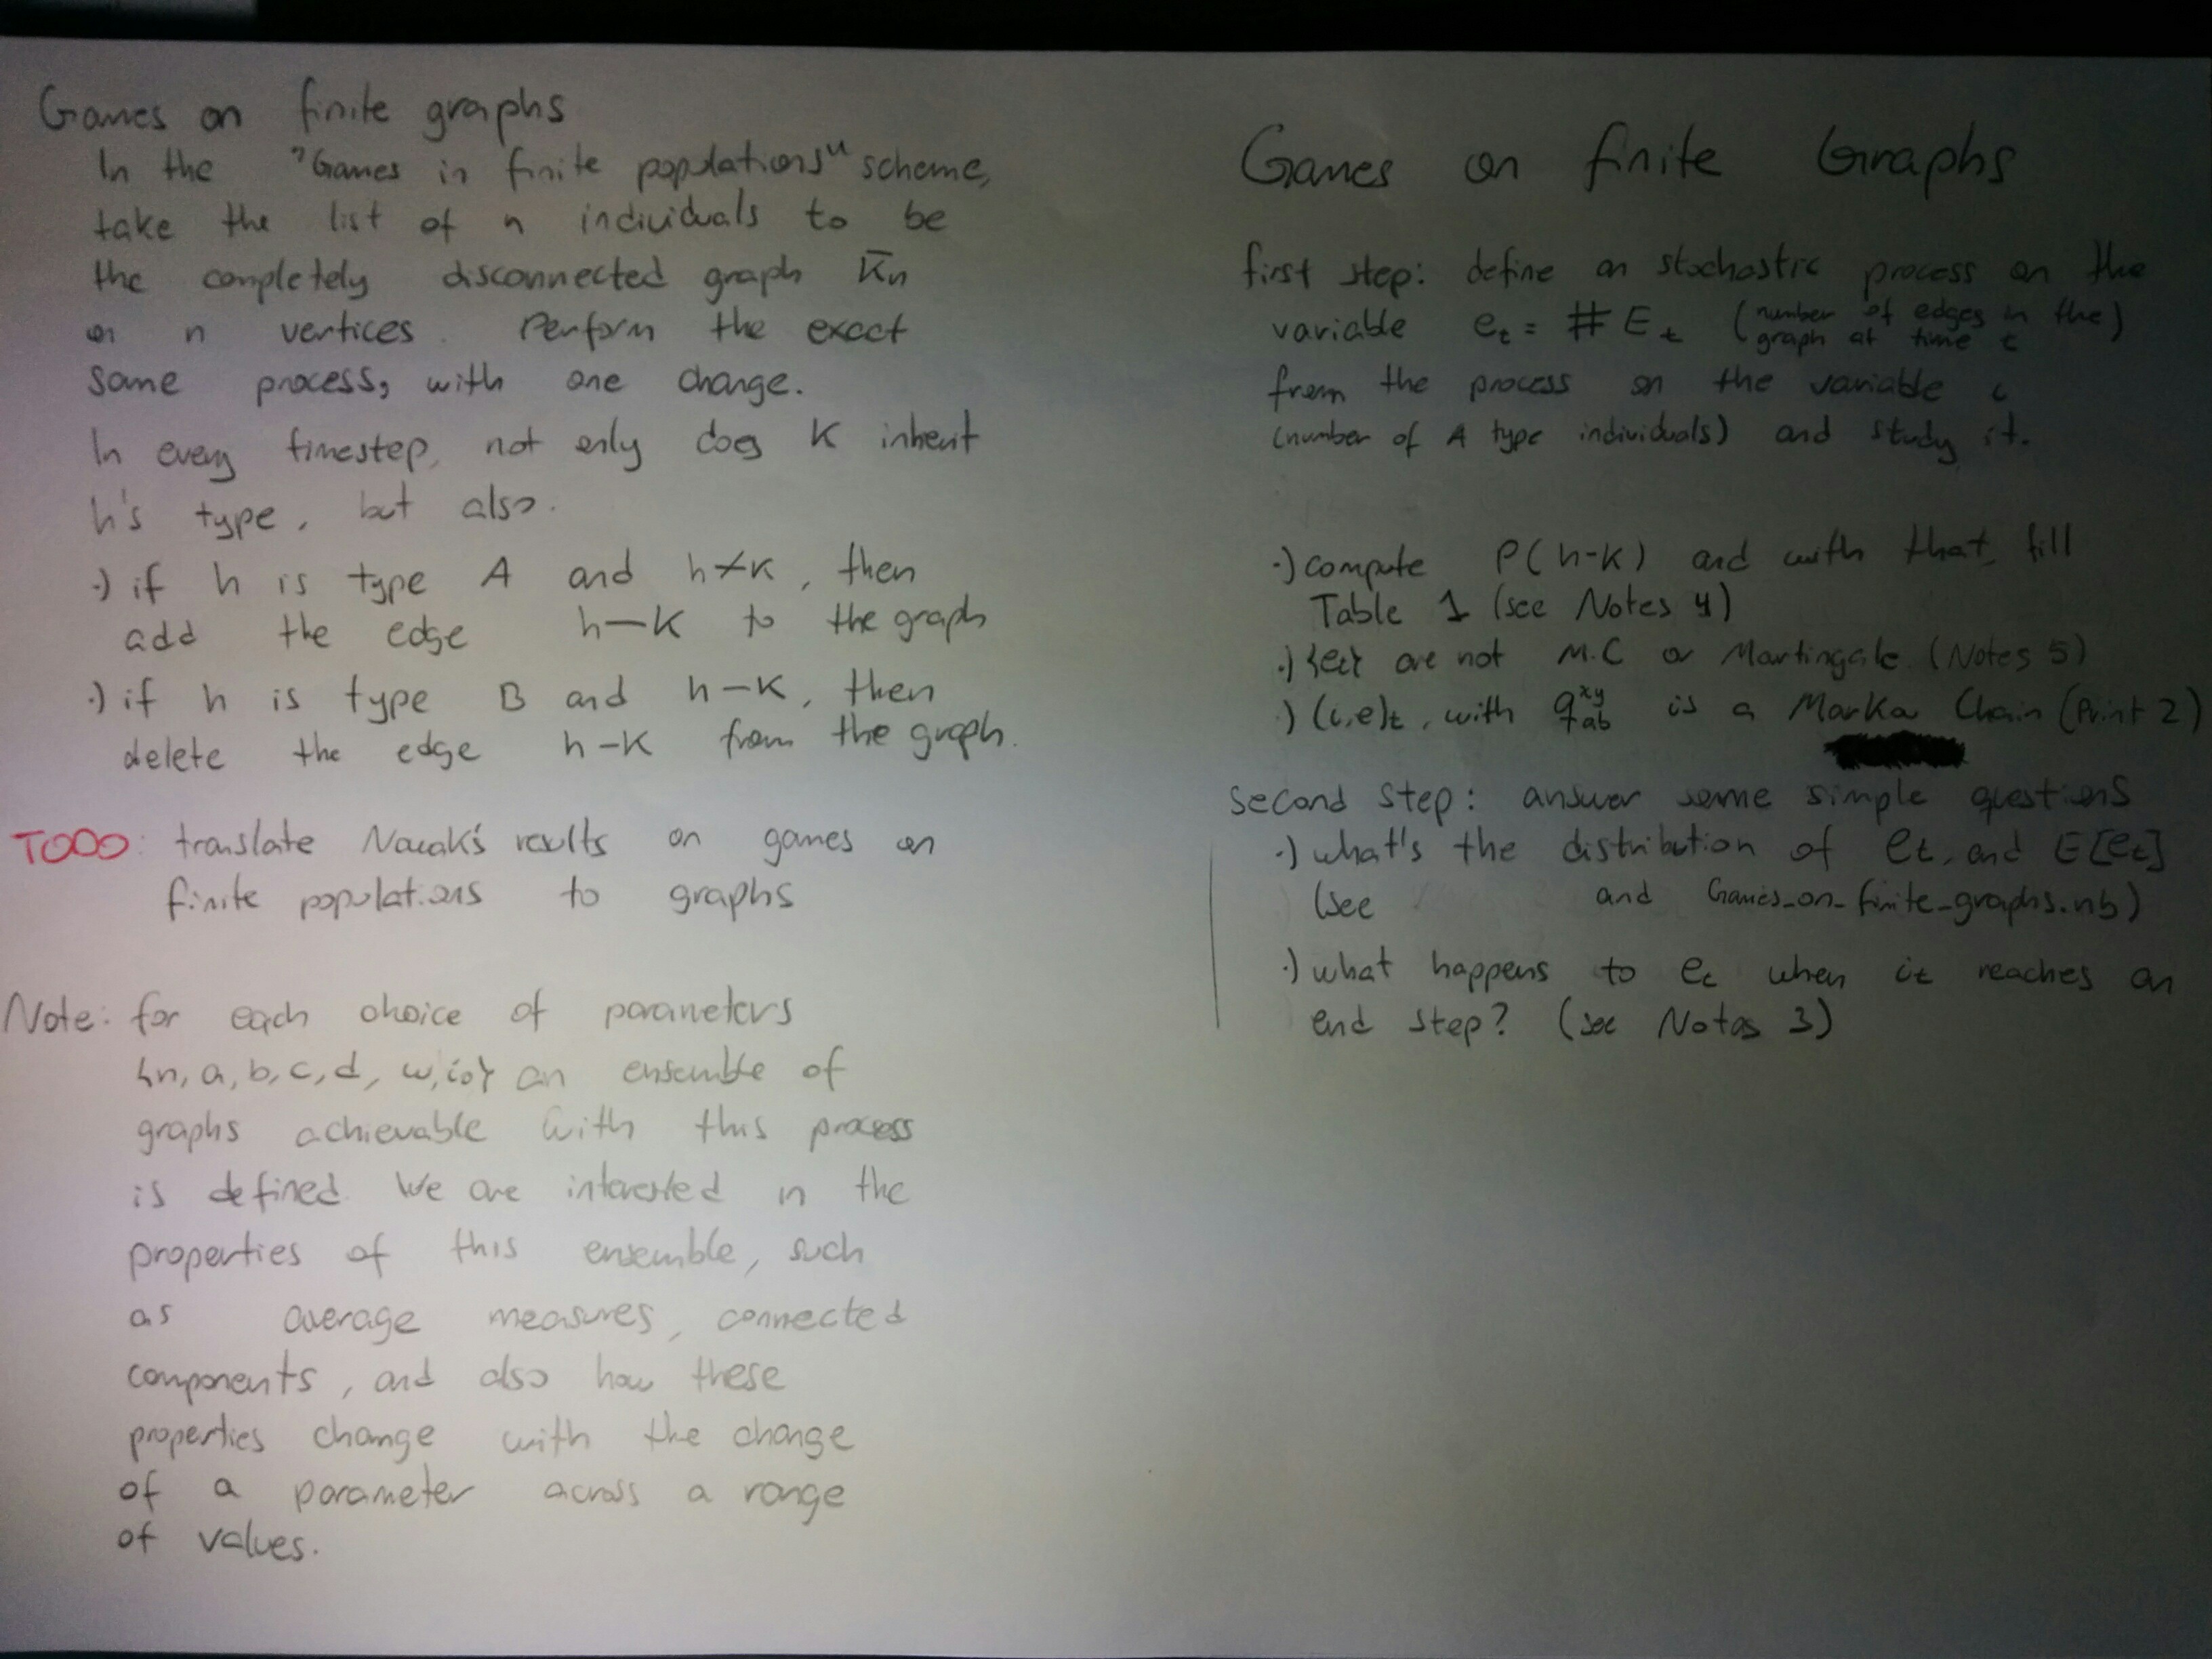 Games on finite graphs
In the "Games in finite populations" scheme,
take the list of n individuals to be
the completely disconnected graph K̅n
on n vertices. Perform the exact
same process, with one change.
In every timestep, not only does K inherit
h's type, but also.
·) if h is type A and h≁K, then
add the edge h—K to the graph
·) if h is type B and h-K, then
delete the edge h-K from the graph.
TODO: translate Nowak's results on games on
finite populations to graphs
Note: for each choice of parameters
{n, a, b, c, d, w, i0} an ensemble of
graphs achievable with this process
is defined. We are interested in the
properties of this ensemble, such
as average measures, connected
components, and also how these
properties change with the change
of a parameter across a range
of values.
Games on finite Graphs
first step: define an stochastic process on the
variable et = # Et (number of edges in the graph at time t)
from the process on the variable i
(number of A type individuals) and study it.
·) compute P(h-K) and with that, fill
Table 1 (see Notes 4)
·) {et} are not M.C or Martingale (Notes 5)
·) (i,e)t, with q^xy_ab is a Markov Chain (Print 2)
second step: answer some simple questions
·) what's the distribution of et, and E[et]
(see and Games_on_finite_graphs.nb)
·) what happens to et when it reaches an
end step? (see Notes 3)